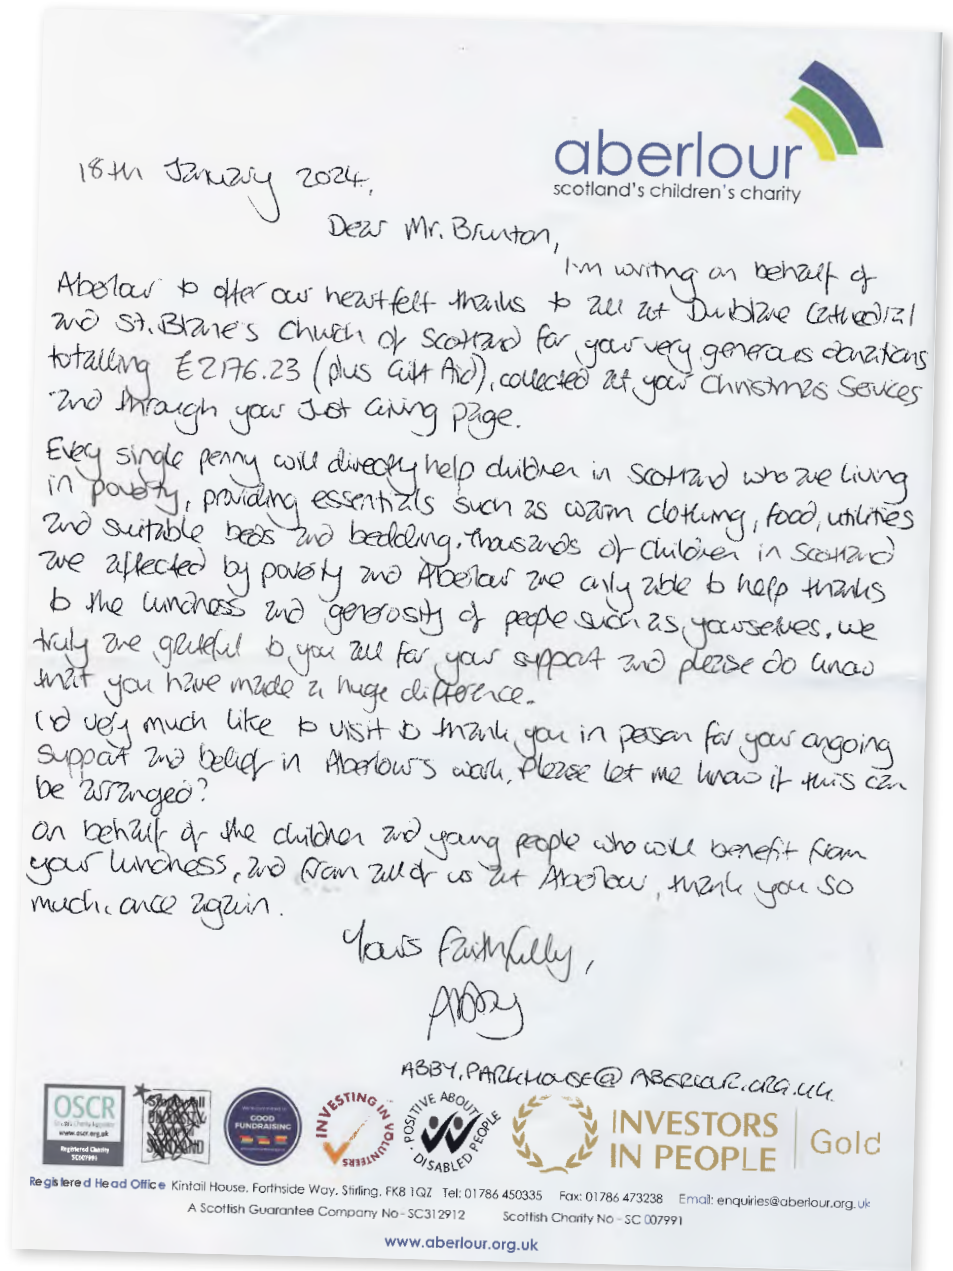 aberlour
scotland's children's charity
18th January 2024,
Dear Mr. Brunton,
I'm writing on behalf of
Aberlour to offer our heartfelt thanks to all at Dunblane Cathedral
and St. Blane's Church of Scotland for your very generous donations
totalling £2176.23 (plus Gift Aid), collected at your Christmas Services
and through your Just Giving page.
Every single penny will directly help children in Scotland who are living
in poverty, providing essentials such as warm clothing, food, utilities
and suitable beds and bedding. Thousands of children in Scotland
are affected by poverty and Aberlour are only able to help thanks
to the kindness and generosity of people such as yourselves. We
truly are grateful to you all for your support and please do know
that you have made a huge difference.
I'd very much like to visit to thank you in person for your ongoing
support and belief in Aberlour's work. Please let me know if this can
be arranged?
On behalf of the children and young people who will benefit from
your kindness, and from all of us at Aberlour, thank you so
much, once again.
Yours Faithfully,
Abby
ABBY.PARKHOUSE@ABERLOUR.ORG.UK
OSCR
www.oscr.org.uk
Registered Charity
SC007991
GOOD
FUNDRAISING
INVESTING IN VOLUNTEERS
POSITIVE ABOUT DISABLED PEOPLE
INVESTORS
IN PEOPLE
Gold
Registered Head Office Kintail House, Forthside Way, Stirling, FK8 1QZ Tel: 01786 450335 Fax: 01786 473238 Email: enquiries@aberlour.org.uk
A Scottish Guarantee Company No - SC312912 Scottish Charity No - SC 007991
www.aberlour.org.uk